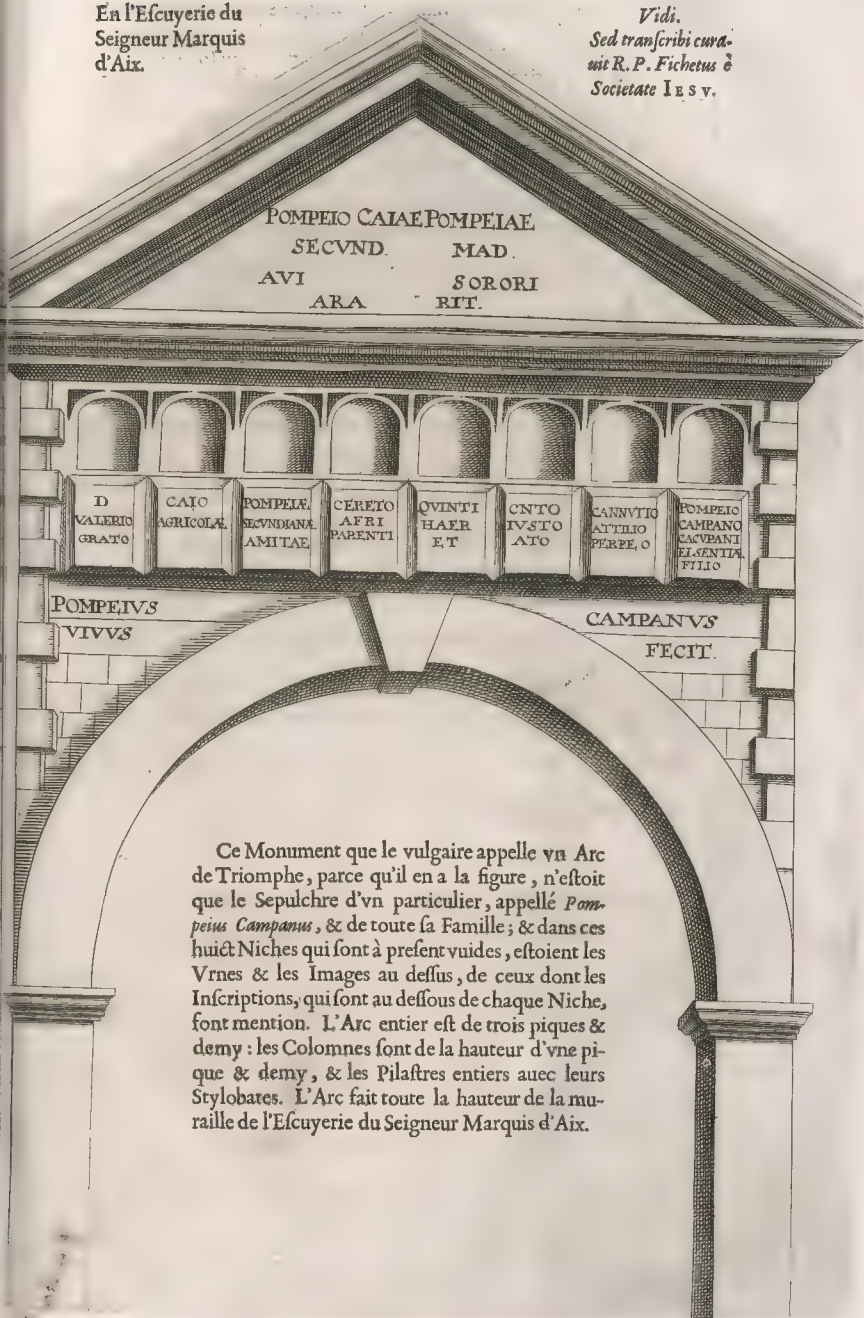 En l'Eſcuyerie du
Seigneur Marquis
d'Aix.
Vidi.
Sed tranſcribi cura-
uit R. P. Fichetus è
Societate IESV.
POMPEIO CAIAE POMPEIAE
SECVND. MAD.
AVI SORORI
ARA RIT.
D
VALERIO
GRATO
CAIO
AGRICOLÆ
POMPEIÆ
SECVNDIANÆ
AMITAE
CERETO
AFRI
PARENTI
QVINTI
HAER
ET
CNTO
IVSTO
ATO
CANNVTIO
ATTILIO
PERPE, O
POMPEIO
CAMPANO
CACVPANI
ELSENTIÆ
FILIO
POMPEIVS
VIVVS
CAMPANVS
FECIT.
Ce Monument que le vulgaire appelle vn Arc
de Triomphe, parce qu'il en a la figure, n'eſtoit
que le Sepulchre d'vn particulier, appellé Pom-
peius Campanus, & de toute ſa Famille; & dans ces
huict Niches qui ſont à preſent vuides, eſtoient les
Vrnes & les Images au deſſus, de ceux dont les
Inſcriptions, qui ſont au deſſous de chaque Niche,
font mention. L'Arc entier eſt de trois piques &
demy : les Colomnes ſont de la hauteur d'vne pi-
que & demy, & les Pilaſtres entiers auec leurs
Stylobates. L'Arc fait toute la hauteur de la mu-
raille de l'Eſcuyerie du Seigneur Marquis d'Aix.